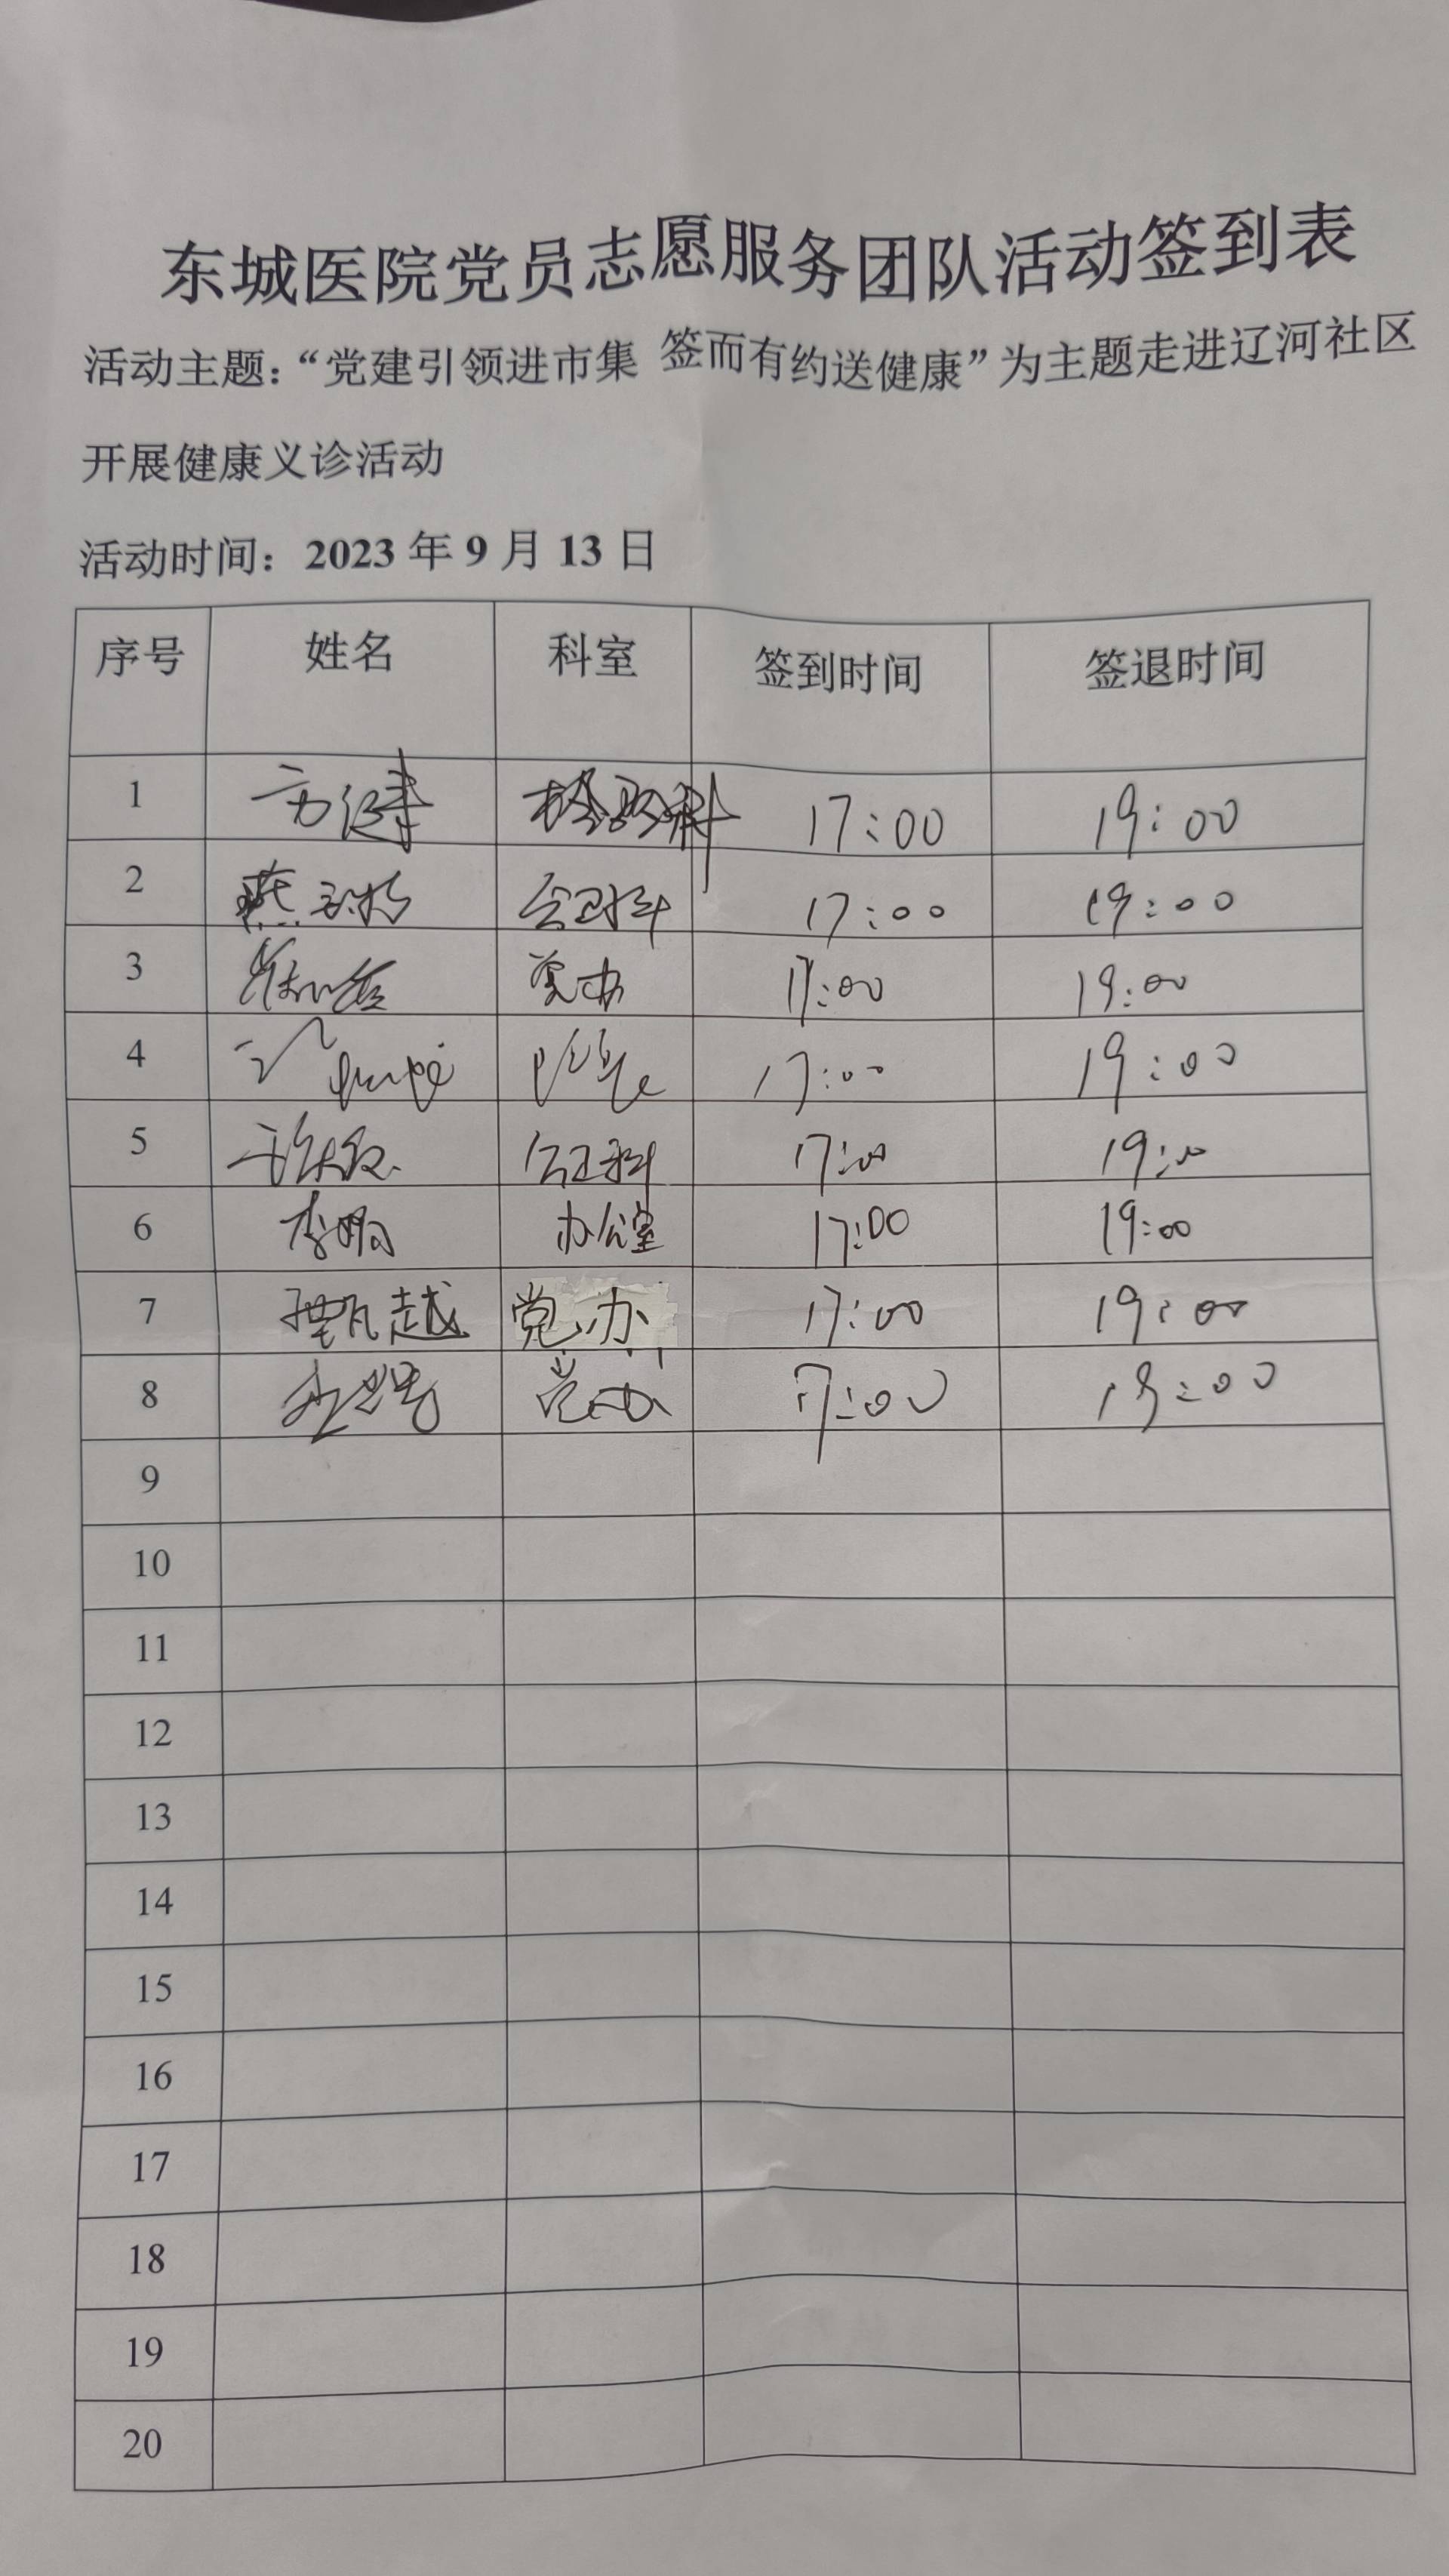 东城医院党员志愿服务团队活动签到表
活动主题：“党建引领进市集 签而有约送健康”为主题走进辽河社区
开展健康义诊活动
活动时间：2023年9月13日
序号 姓名 科室 签到时间 签退时间
1 方健 检验科 17:00 19:00
2 17:00 19:00
3 党办 17:00 19:00
4 17:00 19:00
5 17:00 19:00
6 李鹏 办公室 17:00 19:00
7 甄越 党办 17:00 19:00
8 党办 17:00 19:00
9
10
11
12
13
14
15
16
17
18
19
20